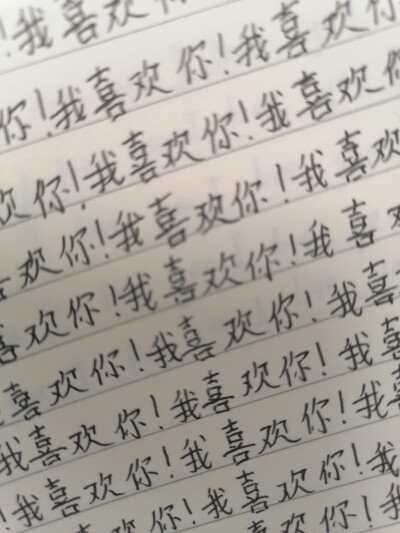 !我喜欢你
你!我喜欢你!我喜欢
欢你!我喜欢你!我喜欢你
喜欢你!我喜欢你!我喜欢
喜欢你!我喜欢你!我喜
喜欢你!我喜欢你!我喜
喜欢你!我喜欢你!我喜
我喜欢你!我喜欢你!我喜
!我喜欢你!我喜欢你!我
我喜欢你!我